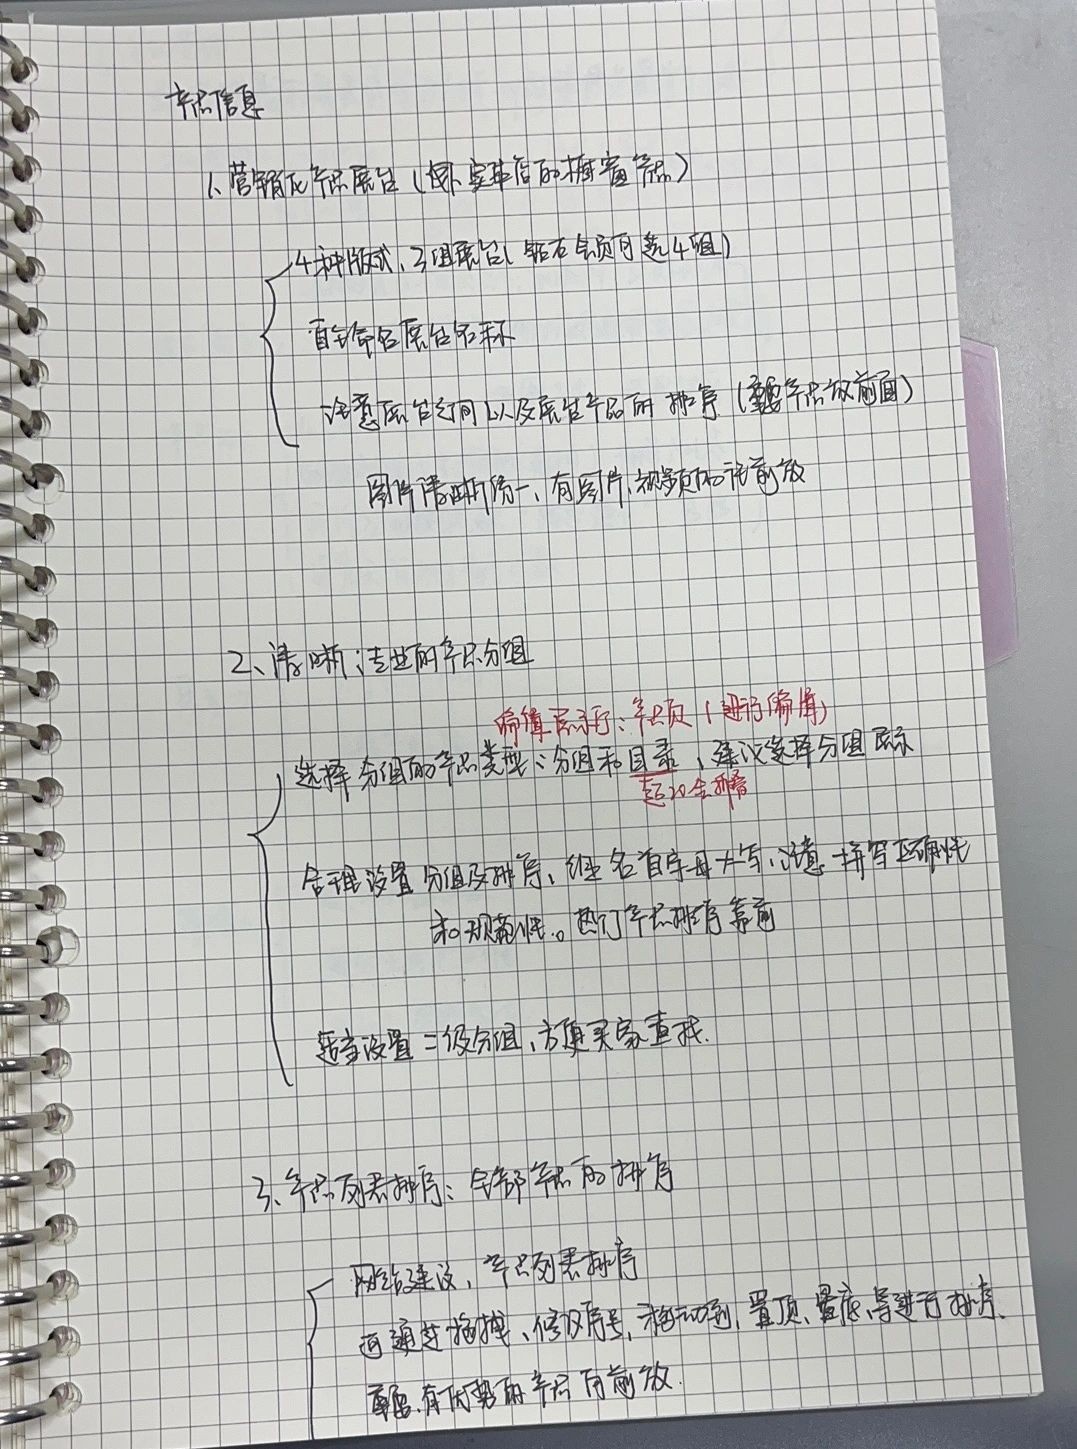 产品信息
1、营销化产品展台（类似实体店的橱窗产品）
4种版式、3组展台（钻石会员可选4组）
自主命名展台名称
注意展台之间以及展台产品的排序（重要产品放前面）
图片清晰统一、有图片、视频的往前放
2、清晰、专业的产品分组
编辑展示厅：产品页（进行编辑）
选择分组的产品类型：分组和目录，建议选择分组展示
合理设置分组及排序、组名首字母大写、注意拼写正确性
和规范性。热门产品排序靠前
适当设置二级分组、方便买家查找.
3、产品列表排序：全部产品的排序
网站建设、产品列表排序
可通过拖拽、修改序号、移动到、置顶、置底、等进行排序、
重要、有优势的产品向前放.